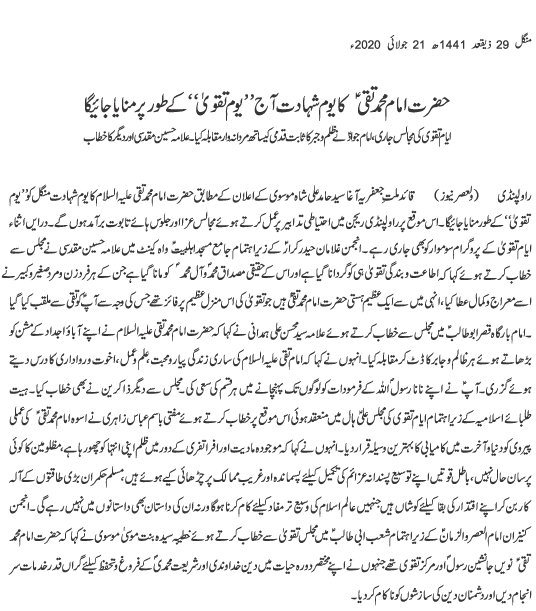 منگل 29 ذیقعد 1441ھ 21 جولائی 2020ء
حضرت امام محمد تقی ؑ کا یوم شہادت آج ’’یوم تقویٰ‘‘ کے طور پر منایا جائیگا
ایام تقویٰ کی مجالس جاری، امام جوادؑ نے ظلم و جبر کا ثابت قدمی کیساتھ مردانہ وار مقابلہ کیا۔ علامہ حسین مقدسی اور دیگر کا خطاب
راولپنڈی (ولعصر نیوز) قائد ملت جعفریہ آغا سید حامد علی شاہ موسوی کے اعلان کے مطابق حضرت امام محمد تقی علیہ السلام کا یوم شہادت منگل کو ’’یوم
تقویٰ‘‘ کے طور منایا جائیگا۔ اس موقع پر راولپنڈی ریجن میں احتیاطی تدابیر پر عمل کرتے ہوئے مجالس عزا اور جلوس ہائے تابوت برآمد ہوں گے۔ دریں اثناء
ایام تقویٰ کے پروگرام سوموار کو بھی جاری رہے۔ انجمن غلامان حیدر کرارؑ کے زیر اہتمام جامع مسجد اہلبیتؑ واہ کینٹ میں علامہ حسین مقدسی نے مجلس سے
خطاب کرتے ہوئے کہا کہ اطاعت و بندگی تقویٰ ہی کو گردانا گیا ہے اور اس کے حقیقی مصداق محمدؐ و آل محمدؑ کو مانا گیا ہے جن کے ہر فرد زن و مرد صغیر و کبیر نے
اسے معراج و کمال عطا کیا، انہی میں سے ایک عظیم ہستی حضرت امام محمد تقیؑ ہیں جو تقویٰ کی اس منزل عظیم پر فائز تھے جس کی وجہ سے آپؑ کو تقی سے ملقب کیا گیا۔
امام بارگاہ قصر ابو طالبؑ میں مجلس سے خطاب کرتے ہوئے علامہ سید محسن علی ہمدانی نے کہا کہ حضرت امام محمد تقی علیہ السلام نے اپنے آباؤ اجداد کے مشن کو
بڑھاتے ہوئے ہر ظالم و جابر کا ڈٹ کر مقابلہ کیا۔ انہوں نے کہا کہ امام تقی علیہ السلام کی ساری زندگی پیار و محبت، علم و عمل، اخوت و رواداری کا درس دیتے
ہوئے گزری۔ آپؑ نے اپنے نانا رسولؐ اللہ کے فرمودات کو لوگوں تک پہنچانے میں ہر قسم کی سعی کی۔ مجلس سے دیگر ذاکرین نے بھی خطاب کیا۔ ہیت
طلبائے اسلامیہ کے زیر اہتمام ایام تقویٰ کی مجلس علیؑ ہال میں منعقد ہوئی اس موقع پر خطاب کرتے ہوئے مفتی باسم عباس زاہری نے اسوہ امام محمد تقی ؑ کی عملی
پیروی کو دنیا و آخرت میں کامیابی کا بہترین وسیلہ قرار دیا۔ انہوں نے کہا کہ موجودہ مادیت اور افراتفری کے دور میں ظلم اپنی انتہا کو چھو رہا ہے، مظلومین کا کوئی
پرسان حال نہیں، باطل قوتیں اپنے توسیع پسندانہ عزائم کی تکمیل کیلئے پسماندہ اور غریب ممالک پر چڑھائی کیے ہوئے ہیں، مسلم حکمران بڑی طاقتوں کے آلہ
کار بن کر اپنے اقتدار کی بقا کیلئے کوشاں ہیں جنہیں عالم اسلام کی وسیع تر مفاد کیلئے کام کرنا ہوگا ورنہ ان کی داستان بھی داستانوں میں نہیں رہے گی۔ انجمن
کنیزان امام العصر والزمانؑ کے زیر اہتمام شعب ابی طالبؑ میں مجلس تقویٰ سے خطاب کرتے ہوئے خطیبہ سیدہ بنت موسیٰ موسوی نے کہا کہ حضرت امام محمد
تقی ؑ نویں جانشین رسولؐ اور مرکز تقویٰ تھے جنہوں نے اپنے مختصر دورہ حیات میں دین خداوندی اور شریعت محمدیؐ کے فروغ و تحفظ کیلئے گراں قدر خدمات سر
انجام دیں اور دشمنان دین کی سازشوں کو ناکام کر دیا۔